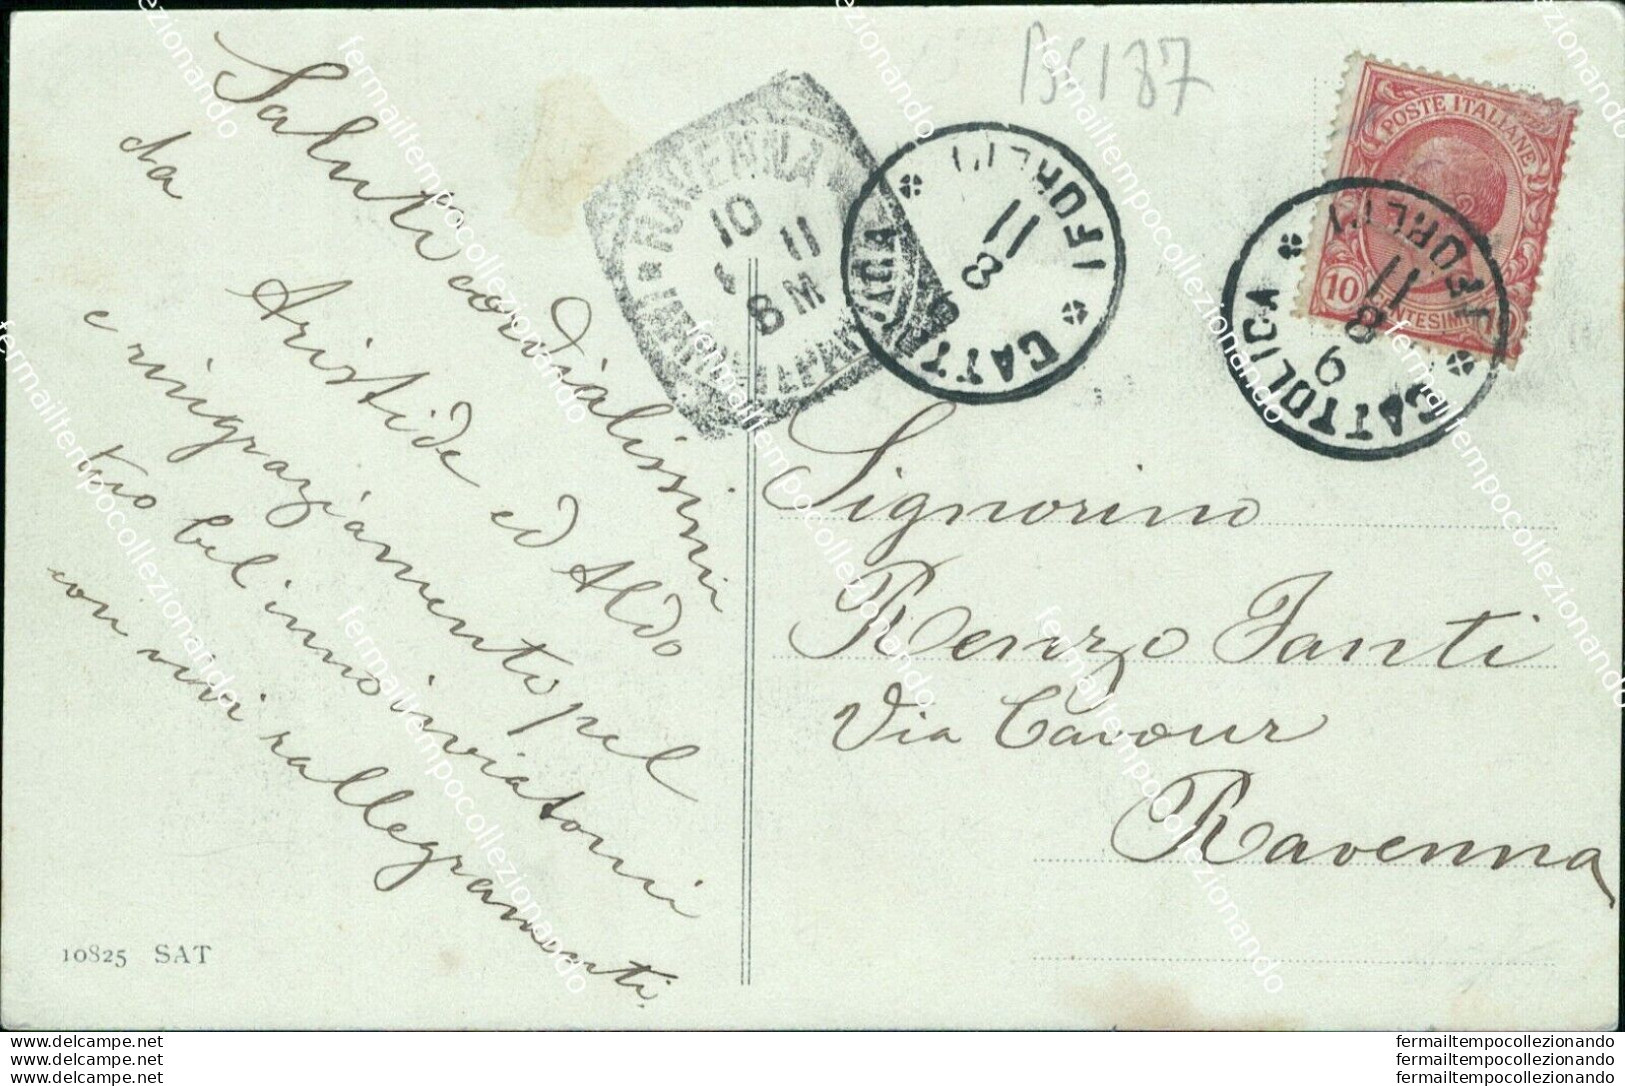 BS187
Saluti cordialissimi
da
Aristide ed Aldo
e ringraziamento pel
tuo bel inno inviatomi
con vivi rallegramenti.
10825 SAT
RAVENNA
10 11
8 M
CATTOLICA
(FORLI')
11
8
9
CATTOLICA
(FORLI')
11
8
9
POSTE ITALIANE
10
CENTESIMI
Signorino
Renzo Fanti
Via Cavour
Ravenna
www.delcampe.net
www.delcampe.net
www.delcampe.net
fermailtempocollezionando
fermailtempocollezionando
fermailtempocollezionando